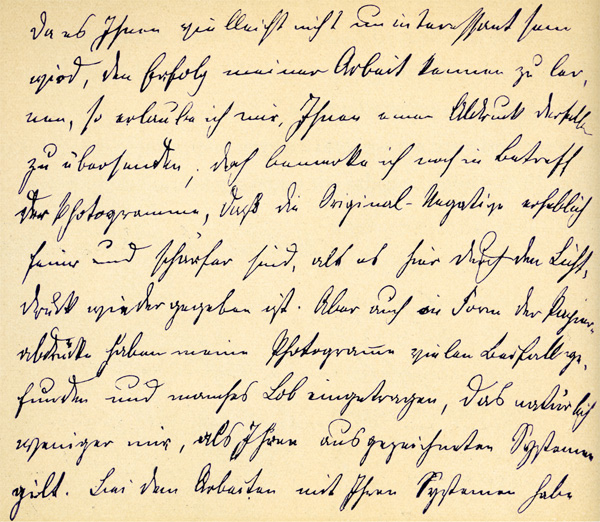 da es Ihnen vielleicht nicht uninteressant sein
wird, den Erfolg meiner Arbeit kennen zu ler-
nen, so erlaube ich mir, Ihnen einen Abdruck derselben
zu übersenden, doch bemerke ich noch in Betreff
der Photogramme, daß die Original-Negative erheblich
feiner und schärfer sind, als es hier durch den Licht-
druck wiedergegeben ist. Aber auch in Form der Papier-
abdrücke haben meine Photogramme vielen Beifall ge-
funden und manches Lob eingetragen, das natürlich
weniger mir, als Ihren ausgezeichneten Systemen
gilt. Bei dem Arbeiten mit Ihren Systemen habe